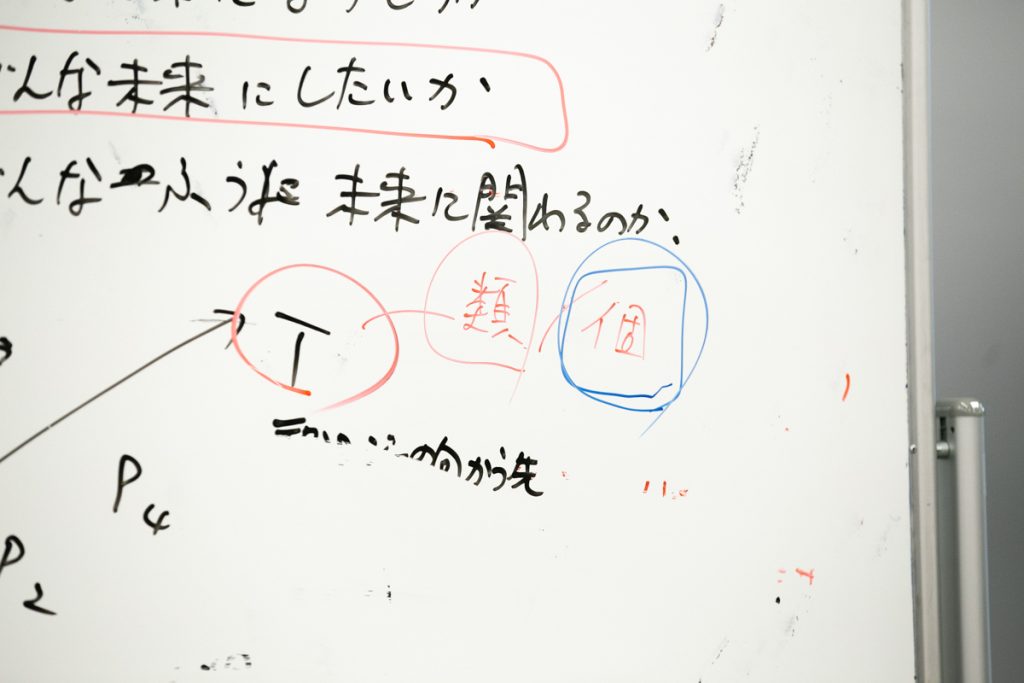 んな未来にしたいか
んなふうに未来に関わるのか、
類 個
T
の向かう先
P4
P2